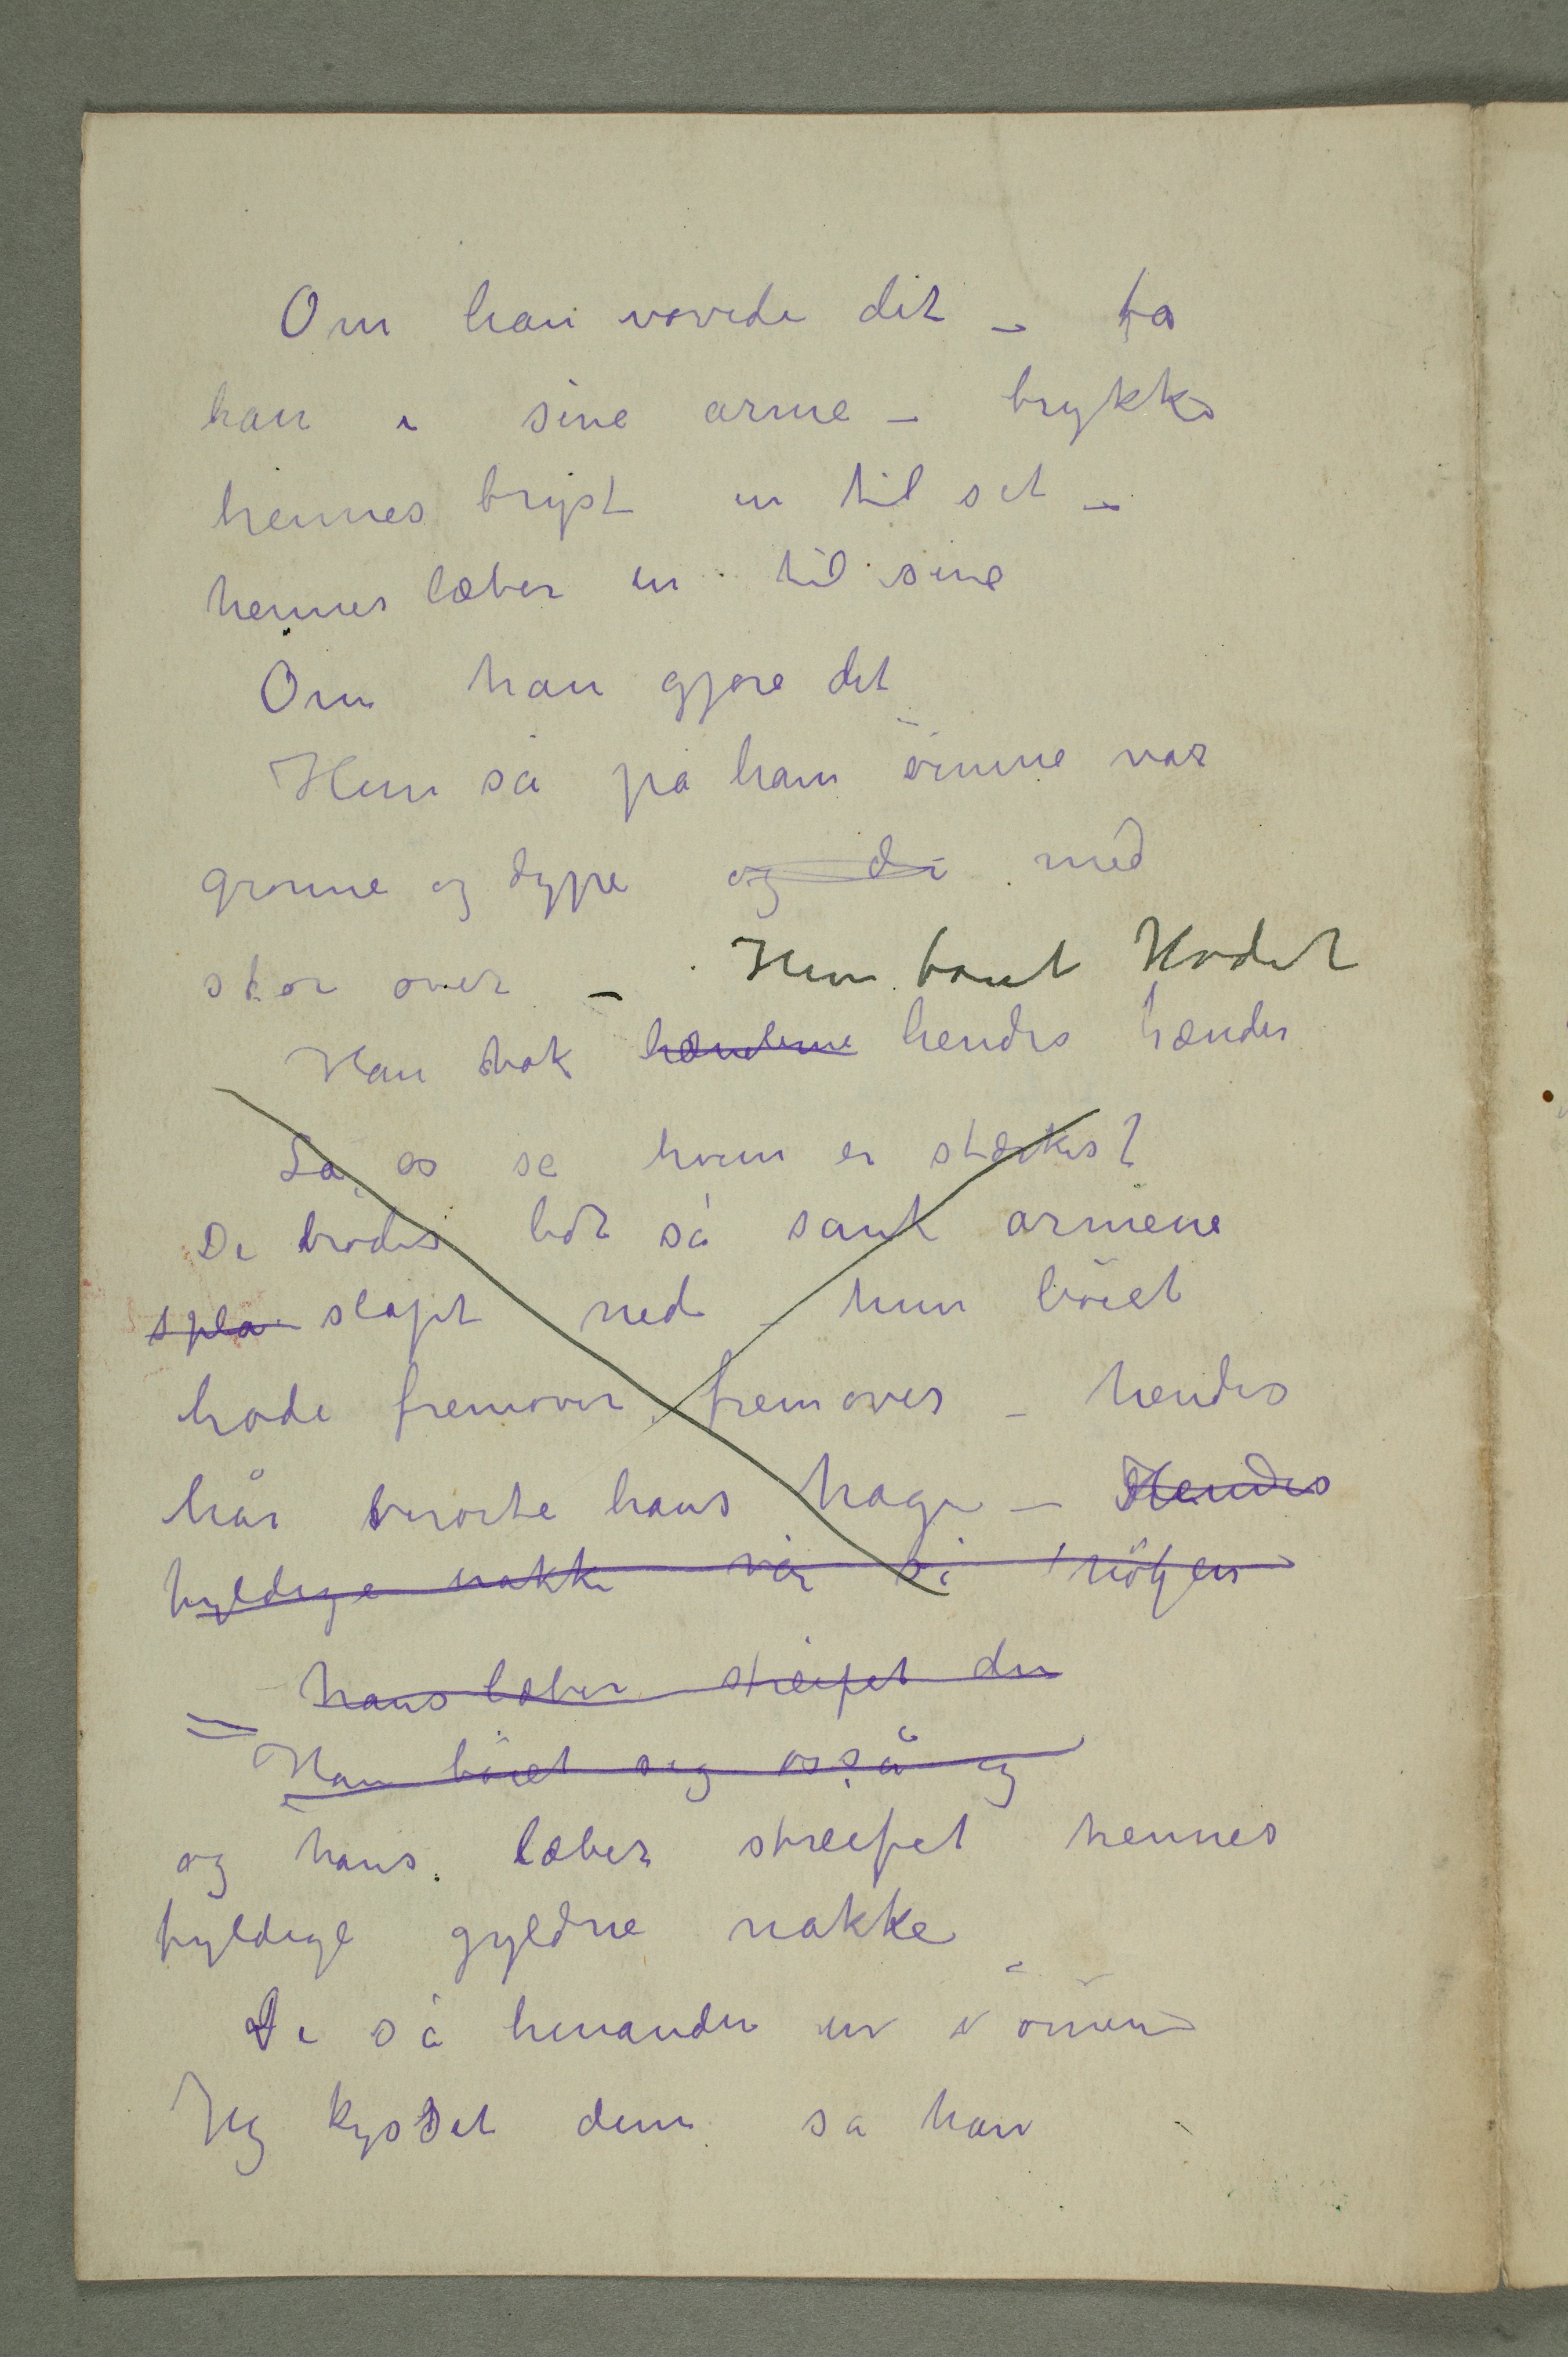 Om han vovede det – ta
han i sine arme – trykke
hennes bryst in til set –
hennes læber in til sine
Om han gjøre det
Hun så på ham öinne var
grønne og dype og di med
slør over – Hun bøiet Hodet
Han tok hænderne hendes hænder
La os se hvem er stærkes?
De brødes lidt så sank armene
spla slapt ned – hun böiet
hode fremover fremover – hendes
hår berørte hans hage – Hendes
fyldige nakke var så
hans læber streifet den
Han böiet sig osså og
og hans læber streifet hennes
fyldige gyldne nakke
De så hinanden in i öinene
Jeg kysset dem sa han